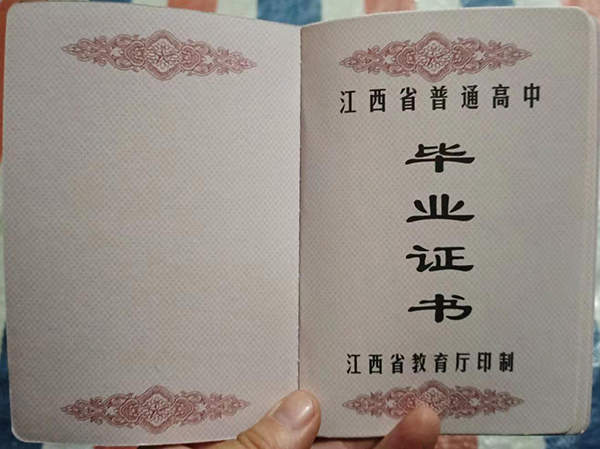 江西省普通高中
毕
业
证
书
江西省教育厅印制